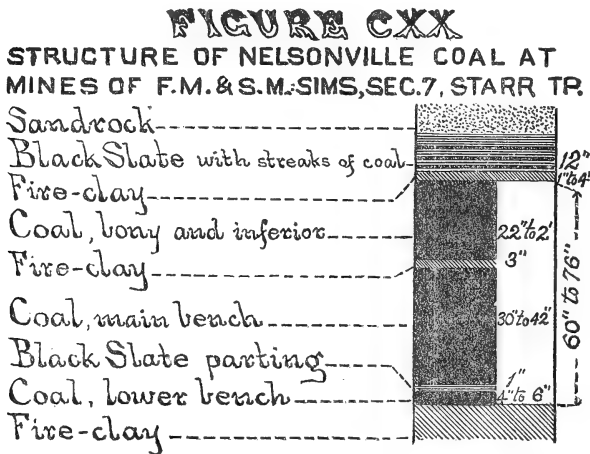 FIGURE CXX
STRUCTURE OF NELSONVILLE COAL AT
MINES OF F.M. & S.M. SIMS, SEC. 7, STARR TP.
Sandrock
Black Slate with streaks of coal
12"
Fire-clay
1" to 4"
Coal, bony and inferior
22" to 2'
Fire-clay
3"
Coal, main bench
30" to 42"
60" to 76"
Black Slate parting
1"
Coal, lower bench
4" to 6"
Fire-clay